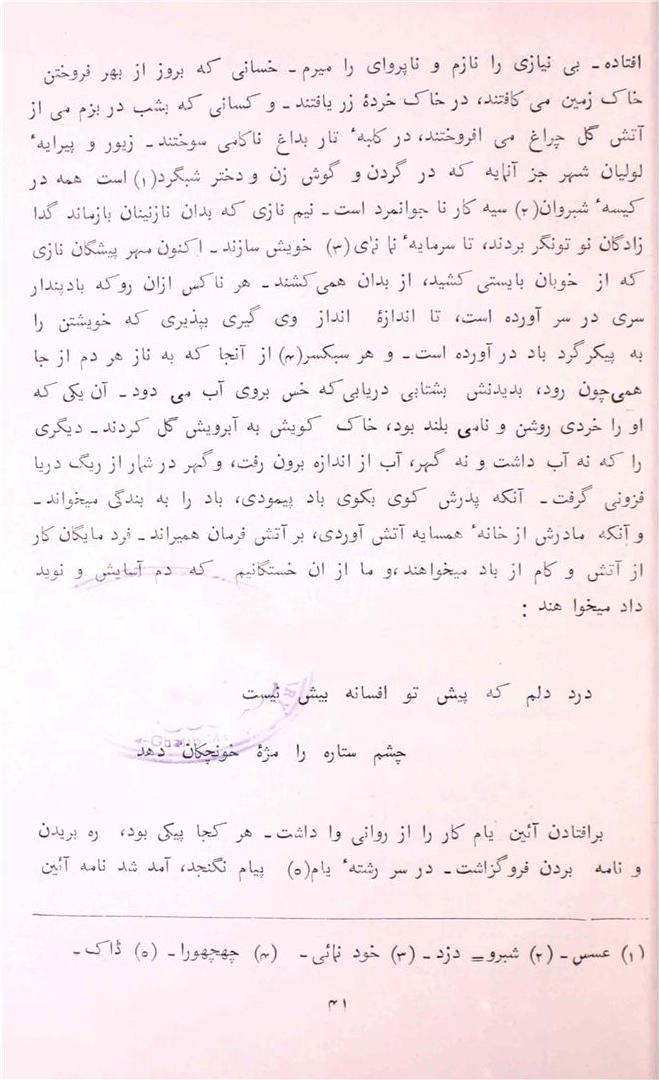 افتاده ـ بی نیازی را نازم و ناپروای را میرم ـ خسانی که بروز از بهر فروختن
خاک زمین می کافتند، در خاک خردۀ زر یافتند ـ و کسانی که بشب در بزم می از
آتش گل چراغ می افروختند، در کلبهٴ تار بداغ ناکامی سوختند ـ زیور و پیرایهٴ
لولیان شهر جز آنمایه که در گردن و گوش زن و دختر شبگرد(۱) است همه در
کیسهٴ شبروان(۲) سیه کار نا جوانمرد است ـ نیم نازی که بدان نازنینان بازماند گدا
زادگان نو تونگر بردند، تا سرمایهٴ نما نمای (۳) خویش سازند ـ اکنون مهر پیشگان نازی
که از خوبان بایستی کشید، از بدان همی کشند ـ هر ناکس ازان روکه بادپندار
سری در سر آورده است، تا اندازۀ انداز وی گیری بپذیری که خویشتن را
به پیکر گرد باد در آورده است ـ و هر سبکسر(۴) از آنجا که به ناز هر دم از جا
همی‌چون رود، بدیدنش بشتابی دریابی که خس بروی آب می دود ـ آن یکی که
او را خردی روشن و نامی بلند بود، خاک کویش به آبرویش گل کردند ـ دیگری
را که نه آب داشت و نه گهر، آب از اندازه برون رفت، وگهر در شمار از ریگ دریا
فزونی گرفت ـ آنکه پدرش کوی بکوی باد پیمودی، باد را به بندگی میخواند ـ
و آنکه مادرش از خانهٴ همسایه آتش آوردی، بر آتش فرمان همیراند ـ فرد مایگان کار
از آتش و کام از باد میخواهند ،و ما از ان خستگانیم که دم آسایش و نوید
داد میخوا هند :
درد دلم که پیش تو افسانه بیش نیست
چشم ستاره را مژۀ خونچکان دهد
برافتادن آئین یام کار را از روانی وا داشت ـ هر کجا پیکی بود، ره بریدن
و نامه بردن فروگزاشت ـ در سر رشتهٴ یام(۵) پیام نگنجد، آمد شد نامه آئین
(۱) عسس ـ (۲) شبرو= دزد ـ (۳) خود نمائی ـ (۴) چهچهورا ـ (۵) ڈاک ـ
۴۱